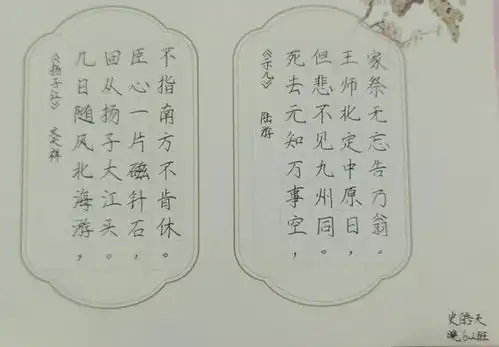 《扬子江》 文天祥
几日随风北海游，
回从扬子大江头。
臣心一片磁针石，
不指南方不肯休。
《示儿》 陆游
死去元知万事空，
但悲不见九州同。
王师北定中原日，
家祭无忘告乃翁。
史皓天
6.2班